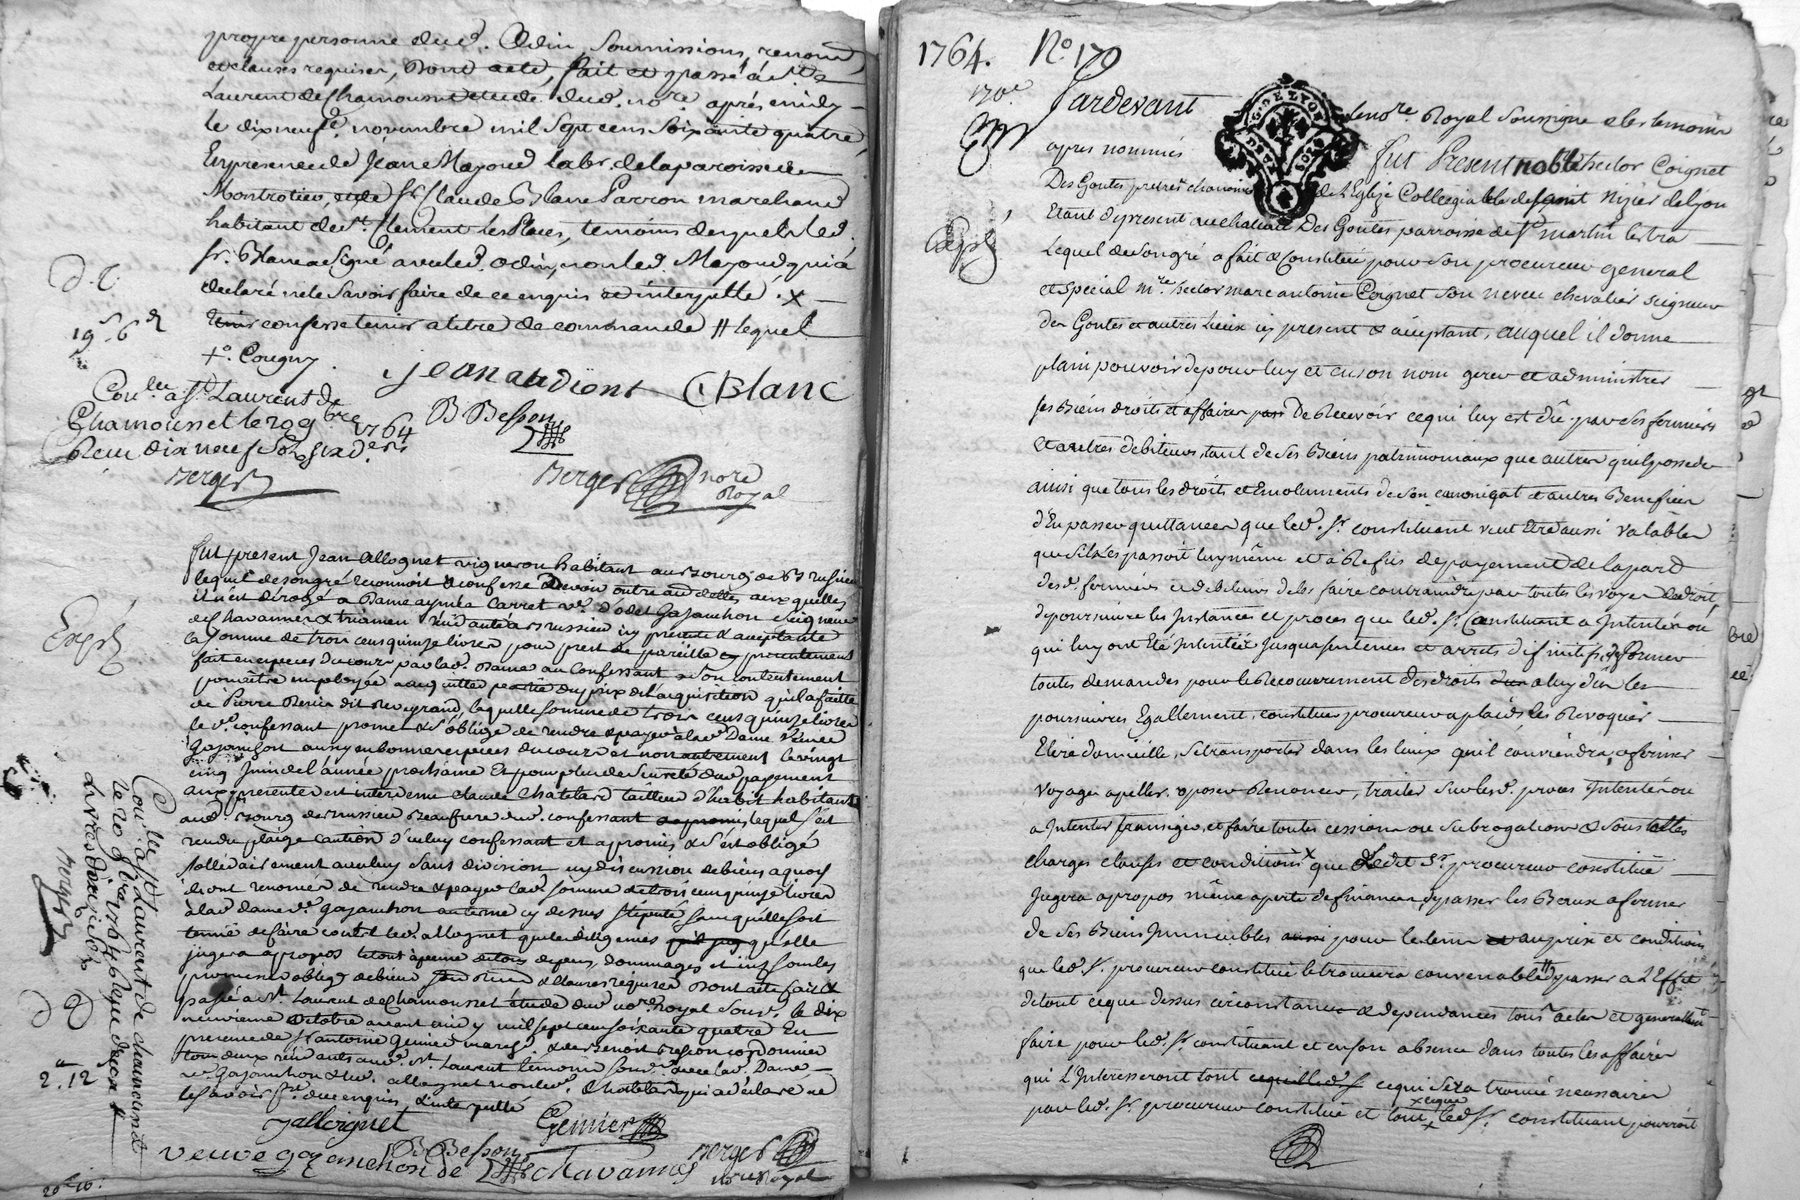 propre personne dud. Odin, Soumissions, renon
et clauses requises, Dont acte, fait et passé à St
Laurent de Chamousset etude dud. nore. après midy
le dix neufe. novembre mil sept cens soixante quatre
En presence de Jean Mayoud labr. de la paroisse de
Montrotier, et de Sr. Claude Blanc Parron marchand
habitant de St. Clement les Places, temoins desquels led.
Sr. Blanc a signé avec led. Odin, non led. Mayoud qui a
declaré ne le Savoir faire de ce enquis et interpellé. x
confesse tenir a titre de commande # lequel
Jean audiont C Blanc
B Besson
Con.lé a St. Laurent de
Chamousset le 29 9bre 1764
Receu dix neuf Sols six d.ers
Berger
Berger nore
Royal
19 s 6 d
fut present Jean Allognet vigneron habitant au Bourg de Brussieu
lequel de son gré reconnoit & confesse devoir outre au dettes auxquelles
il n'est derogé a Dame aymée Carret ve. d'odet Gajanchon seigneur
de chavannes & trianen residante a Brussieu icy presente & acceptante
la somme de trois cens quinze livres pour prest de pareille presentement
fait en especes de cour par lad. Dame au Confessant a son contentement
pour être employée a acquitter partie du prix de l'acquisition qu'il a faitte
de Pierre dit laquelle somme de trois cens quinze livres
le d. confessant promet & s'oblige de rendre & payer a lad. Dame veuve
Gajanchon aussy en bonnes especes de cour et non autrement le vingt
cinq Juin de l'année prochaine Et pour plus de Sureté dud. payement
aux presentes est intervenu claude Chatelard tailleur d'habit habitant
aud. Bourg de Brussieu Beaufrere dud. confessant lequel s'est
rendu pleige caution d'iceluy confessant et a promis & s'est obligé
sollidairement avec luy sans division ny discussion de biens a quoy
ils ont renoncé de rendre & payer lad. somme de trois cens quinze livres
à lad. dame ve. gajanchon au terme cy dessus stipulé sans qu'elle soit
tenüe de faire contre led. allognet que les diligences qu'elle
jugera a propos le tout à peine de tous depens, dommages et int. sous les
promesses oblige de biens & clauses requises Dont acte fait &
passé a St. Laurent de Chamousset étude dud. nore. Royal sous. le dix
neuvieme octobre avant midy mil sept cens soixante quatre En
presence de Sr. antoine Genier march. & de Benoit Besson cordonnier
tous deux residants aud. St. Laurent temoins sous. avec lad. Dame
ve. Gajanchon & led. allognet non led. Chatelard qui a declaré ne
le savoir f.re de ce enquis & interpellé
Jallognet
Genier
B Besson
veuve gajanchon de chavannes
Berger
nore Royal
Expé
Con.lé a St. Laurent de chamousset
le 20 8bre 1764 Receu deux
livres douze sols
Berger
2 tt 12
1764. No. 179
170e.
Pardevant
G. DE LYON
le nore Royal Soussigné & les temoins
apres nommés fut Present noble hector Coignet
Des Goutes pretre chanoine de l'Eglize Collegialle de saint Nizier de lyon
Etant de present au chateau Des Goutes parroisse de St. martin lestra
Lequel de son gré a fait & Constitué pour son procureur general
et special mre. hector marc antoine Coignet son neveu chevalier seigneur
des Goutes et autres lieux icy present & acceptant, auquel il donne
plain pouvoir de pour luy et en son nom gerer et administrer
ses Biens droits et affaires De Recevoir ce qui luy est dû par ses fermiers
et autres debiteurs, tant de ses Biens patrimoniaux que autres qu'il possede
ainsi que tous les droits et Emoluments de son canonicat et autres Benefices
d'En passer quittances que led. Sr. constituant veut Etre aussi valables
que s'il les passoit luy même et à Refus de payement de la part
desd. fermiers et debiteurs de les faire contraindre par toutes les voyes de droit
de poursuivre les Instances et procès que led. Sr. Constituant a Intentés ou
qui luy ont Eté Intentés Jusqu'a sentences et arrets difinitifs, de former
toutes demandes pour le Recouvrement des droits a luy dus les
poursuivre Egallement, constituer procureur a plaids, les Revoquer
Elire domicille, se transporter dans les lieux qu'il conviendra affermer
voyages apeller, oposer Renoncer, traiter sur lesd. procès Intentés ou
a Intenter transiger, et faire toutes cessions ou subrogations & sous telles
charges clauses et conditions x que ledit Sr. procureur constitué
Jugera a propos même a perte de finances, de passer les Beaux a fermer
de ses Biens Immeubles pour le tems et au prix et conditions
que led. Sr. procureur constitué le trouvera convenable # de passer a l'Effet
de tout ce que dessus circonstances & dependances tous actes et generallemt.
faire pour led. Sr. constituant et en son absence dans toutes les affaires
qui l'Interesseront tout ce qui sera trouvé necessaire
par led. Sr. procureur constitué et tout x ce que led. Sr. constituant pourroit
Expé